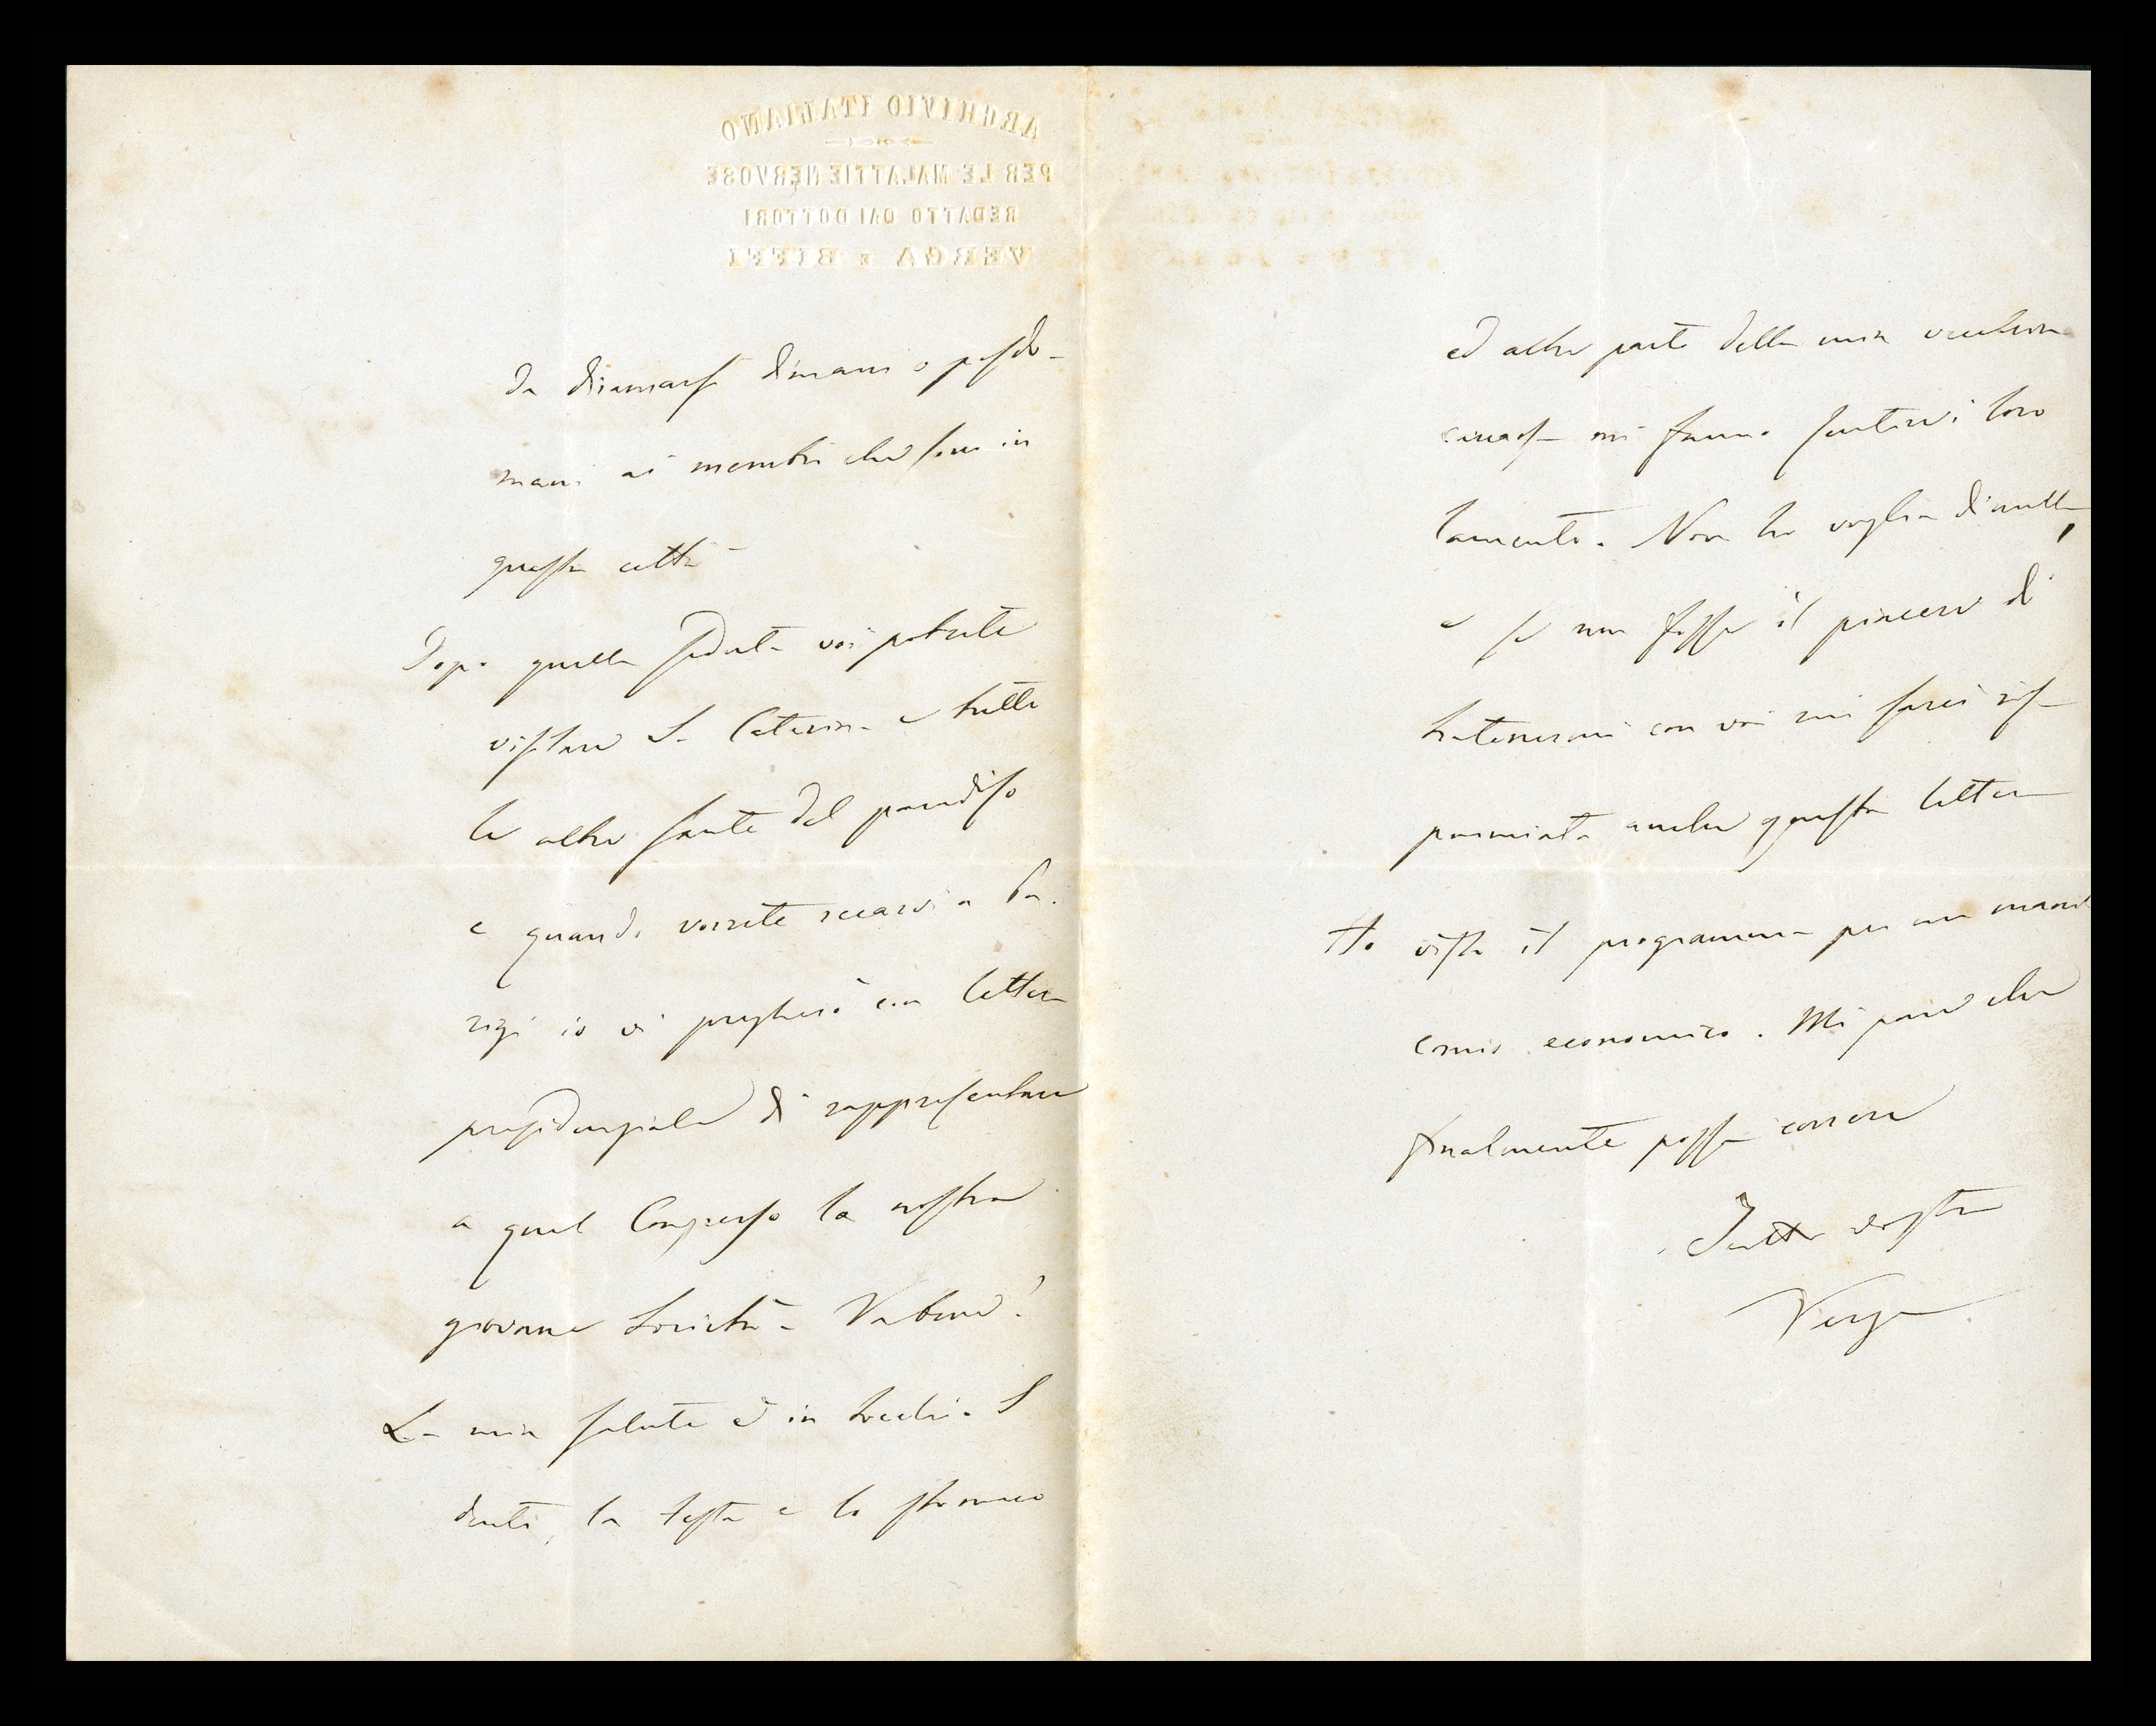 ARCHIVIO ITALIANO
PER LE MALATTIE NERVOSE
REDATTO DAI DOTTORI
VERGA E BIFFI
da diramarsi dimani o posdo-
mani ai membri che sono in
questa città -
Dopo quella seduta voi potrete
visitare S. Caterina e tutte
le altre sante del paradiso
e quando vorrete recarvi a Pa-
rigi io vi pregherò con lettera
presidenziale di rappresentare
a quel Congresso la nostra
giovane Società - Va bene?
La mia salute è in
denti, la testa e lo stomaco
ed altre parti della mia vecchia
carcassa mi fanno sentire i loro
lamenti. Non ho voglia di nulla,
e se non fosse il piacere di
trattenermi con voi mi sarei ris-
parmiata anche questa lettera
Ho visto il programma per un mani-
comio economico. Mi pare che
finalmente possa correre
Tutto vostro
Verga